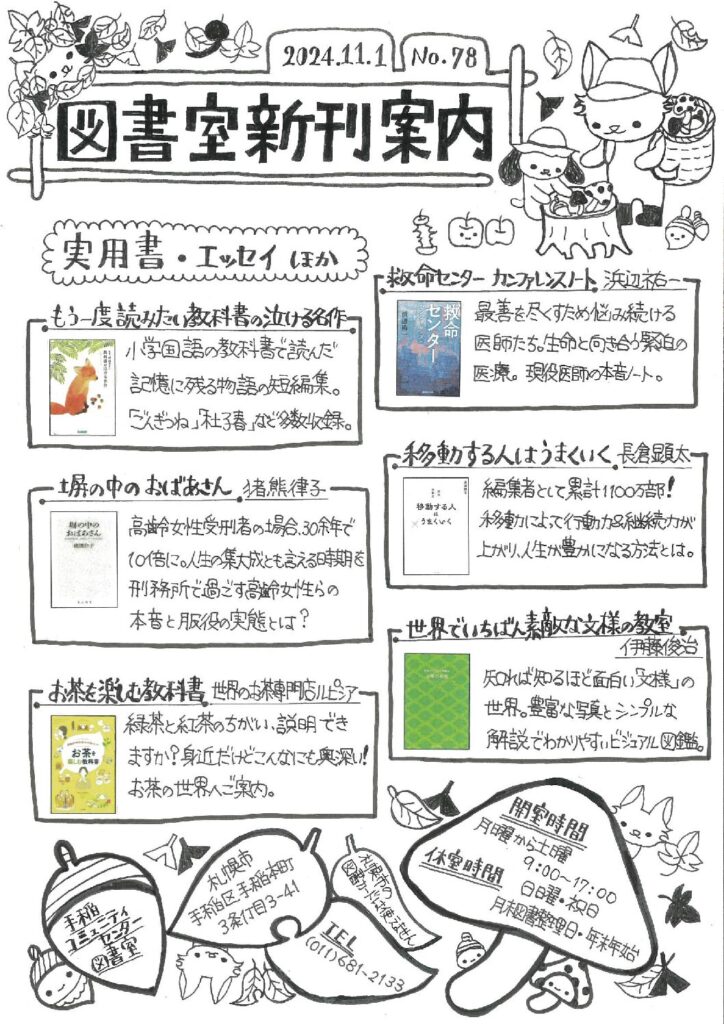 2024.11.1 No.78
図書室新刊案内
実用書・エッセイ ほか
もう一度読みたい教科書の泣ける名作
小学国語の教科書で読んだ
記憶に残る物語の短編集。
「ごんぎつね」「杜子春」など多数収録。
塀の中のおばあさん 猪熊律子
塀の中の
おばあさん
高齢女性受刑者の場合、30余年で
10倍に。人生の集大成とも言える時期を
刑務所で過ごす高齢女性らの
本音と服役の実態とは?
お茶を楽しむ教科書 世界のお茶専門店ルピシア
お茶を
楽しむ教科書
緑茶と紅茶のちがい、説明でき
ますか?身近だけどこんなにも奥深い!
お茶の世界へご案内。
救命センター カンファレンスノート 浜辺祐一
救命
センター
最善を尽くすため悩み続ける
医師たち。生命と向き合う緊迫の
医療。現役医師の本音ノート。
移動する人はうまくいく 長倉顕太
移動する人
は
うまくいく
編集者として累計1100万部!
移動によって行動力&継続力が
上がり、人生が豊かになる方法とは。
世界でいちばん素敵な文様の教室
伊藤俊治
知れば知るほど面白い「文様」の
世界。豊富な写真とシンプルな
解説でわかりやすいビジュアル図鑑。
手稲
コミュニティ
センター
図書室
札幌市
手稲区手稲本町
3条1丁目3-41
TEL
(011)681-2133
札幌市の
図書カードは使えません
開室時間
月曜から土曜
9:00~17:00
休室時間
日曜・祝日
月末図書整理日・年末年始